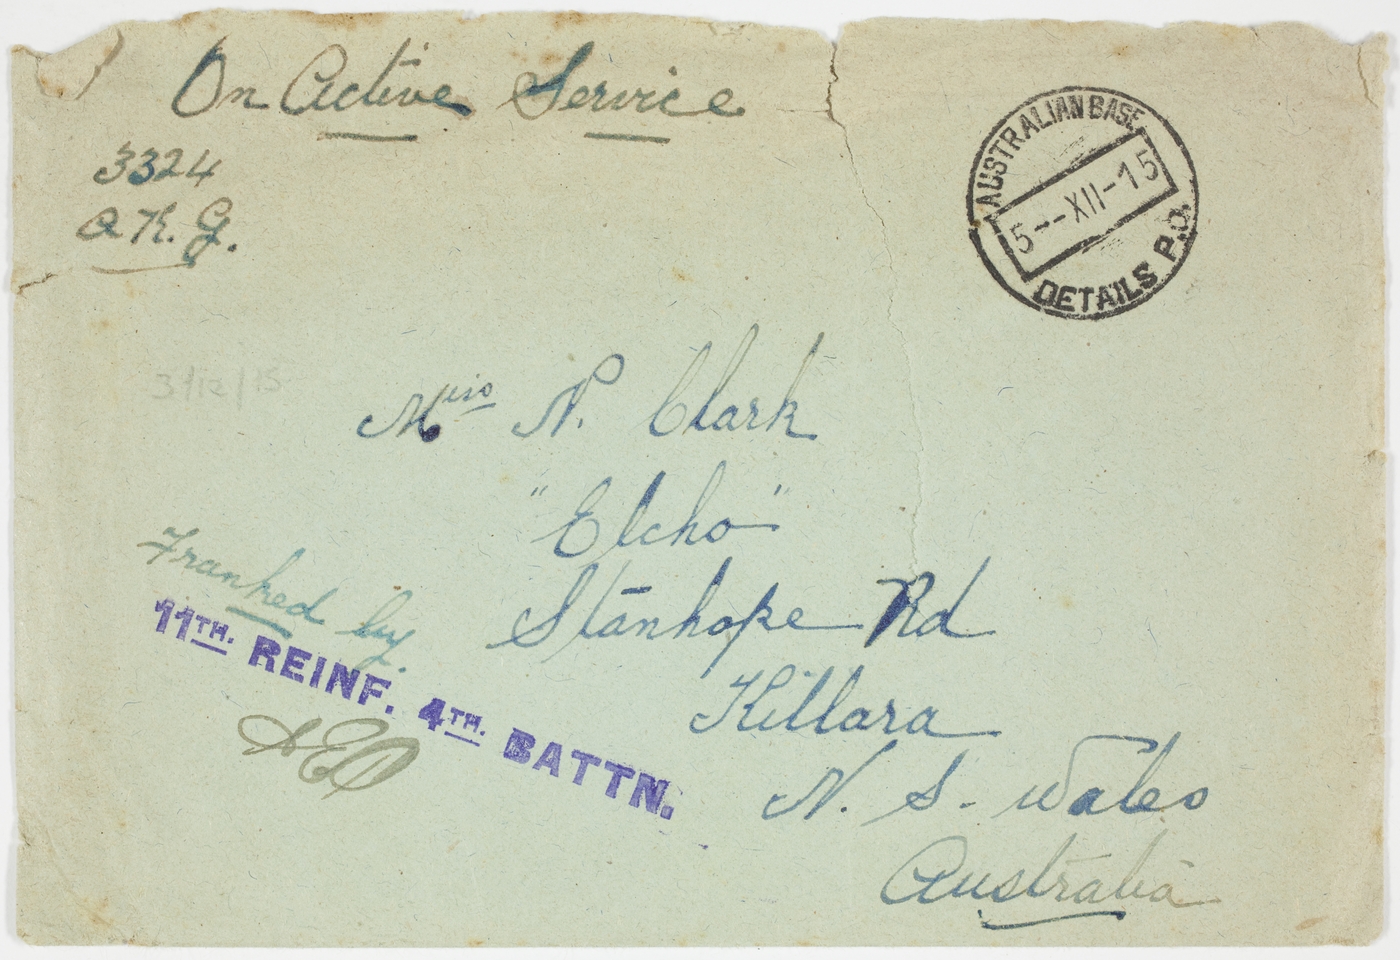 On Active Service
3324
A.K.G.
AUSTRALIAN BASE
5--XII-15
DETAILS P.O.
3/12/15
Miss N. Clark
"Elcho"
Stanhope Rd
Killara
N. S. Wales
Australia
Franked by.
11TH. REINF. 4TH. BATTN.